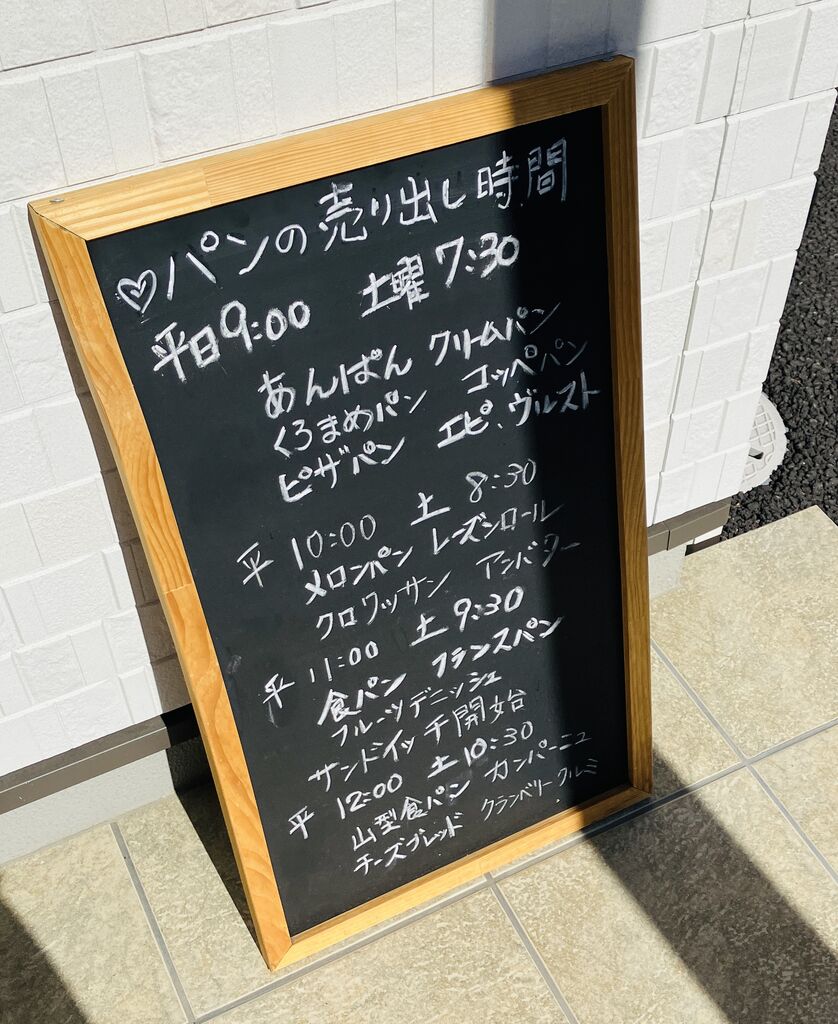 ♡パンの売り出し時間
平日9:00 土曜7:30
あんぱん クリームパン
くろまめパン コッペパン
ピザパン エピ、ヴルスト
平 10:00 土 8:30
メロンパン レーズンロール
クロワッサン アンバター
平 11:00 土 9:30
食パン フランスパン
フルーツデニッシュ
サンドイッチ開始
平 12:00 土10:30
山型食パン カンパーニュ
チーズブレッド クランベリークルミ